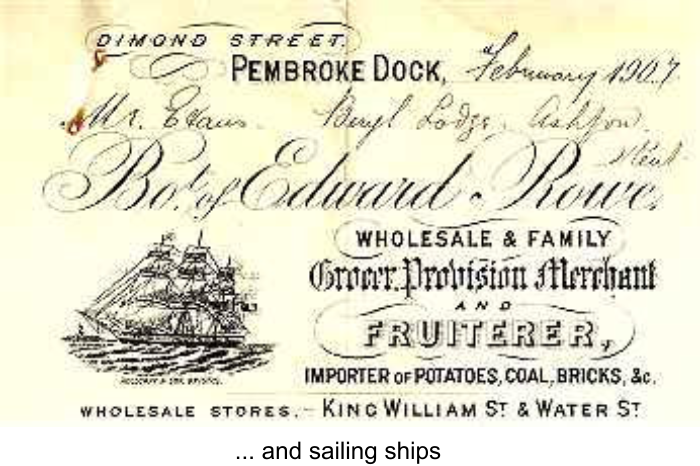 DIMOND STREET.
PEMBROKE DOCK, February 1907
Mr. Evans. Beryl Lodge, Ashford,
Kent
Bot. of Edward Rowe,
WHOLESALE & FAMILY
Grocer, Provision Merchant
AND
FRUITERER,
IMPORTER OF POTATOES, COAL, BRICKS, &c.
WHOLESALE STORES, - KING WILLIAM ST & WATER ST
... and sailing ships